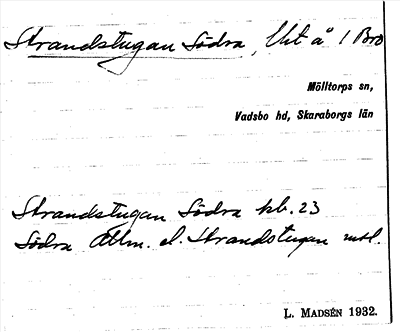 Strandstugan Södra, Utå 1 Bro
Mölltorps sn,
Vadsbo hd, Skaraborgs län
Strandstugan Södra kb. 23
Södra Allm. el. Strandstugan mtl.
L. MADSÉN 1932.